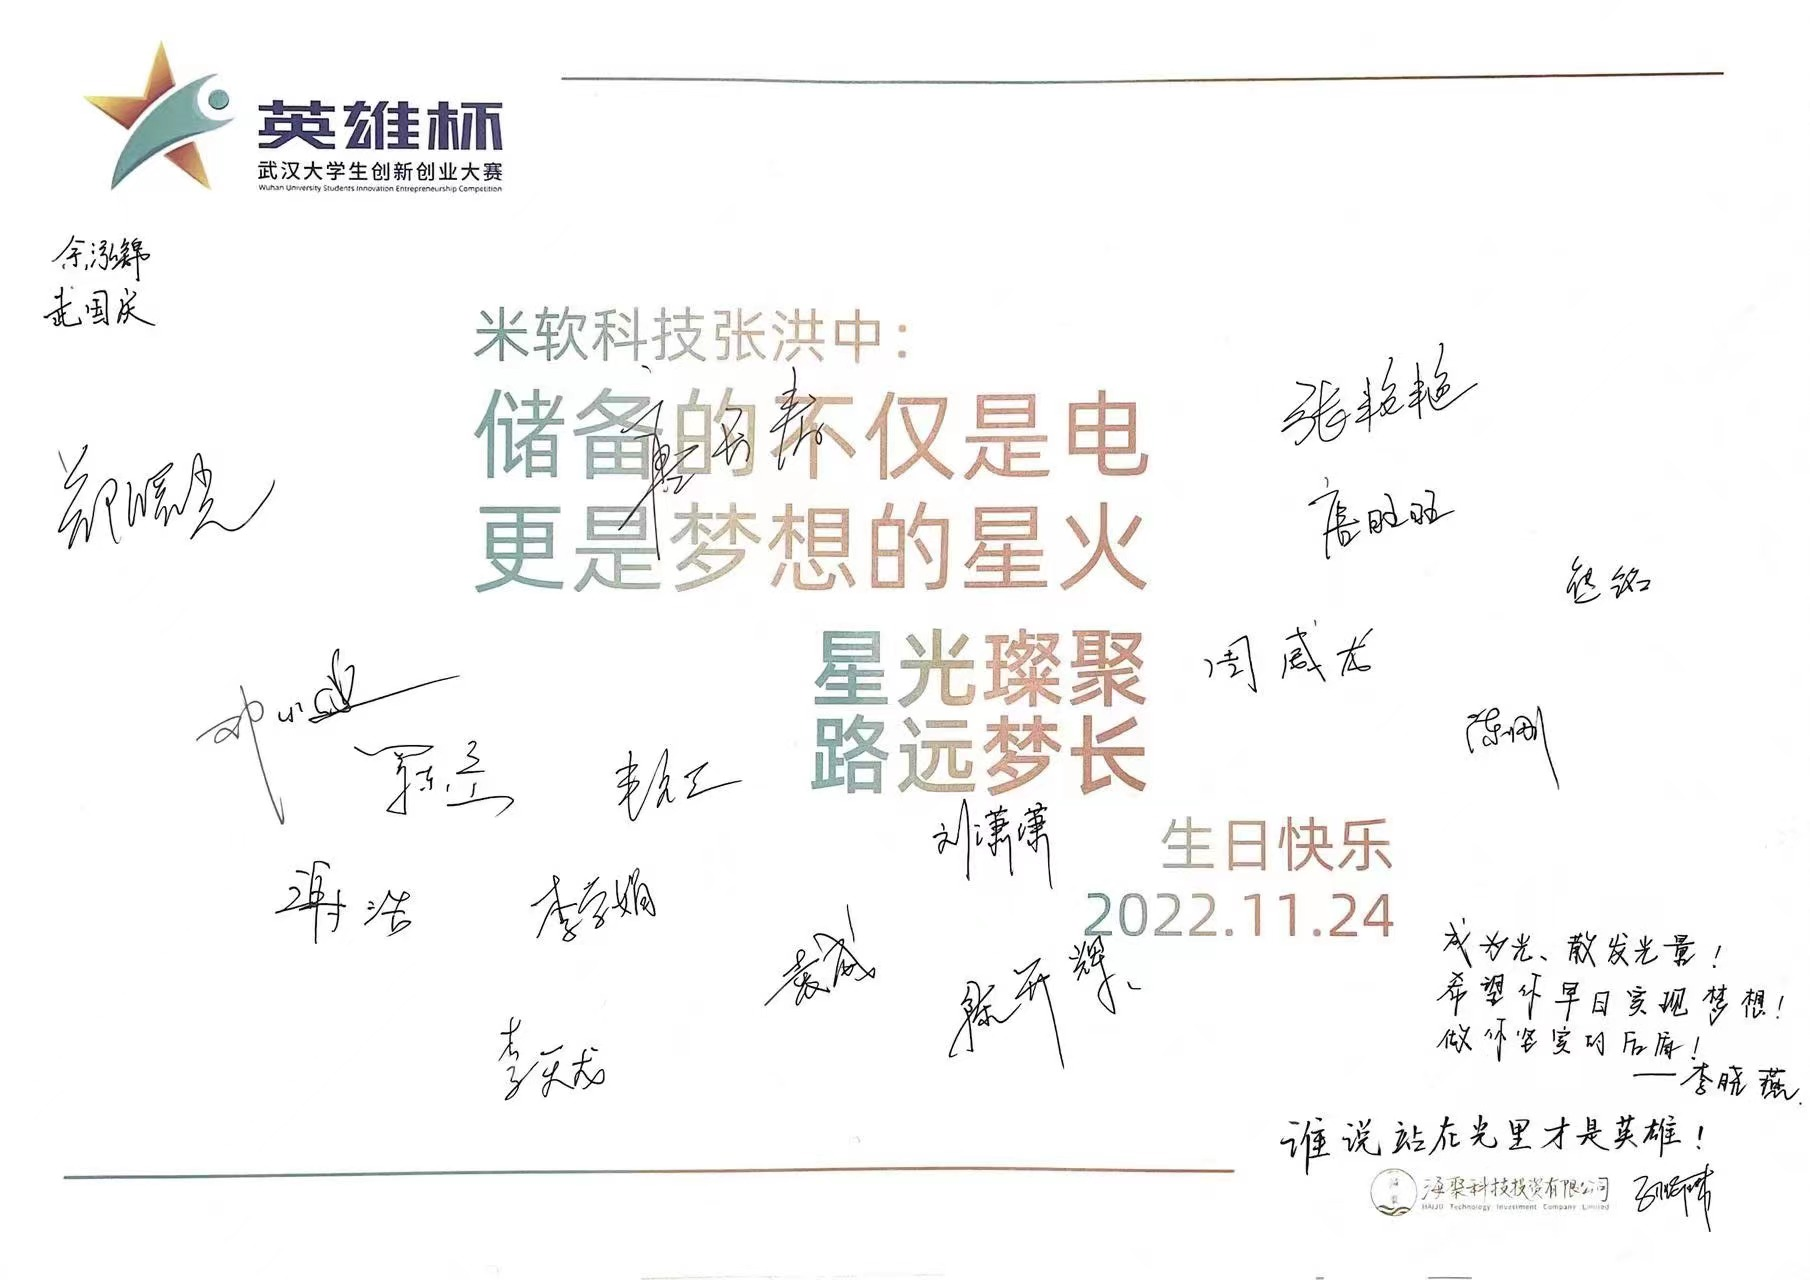 英雄杯
武汉大学生创新创业大赛
Wuhan University Students Innovation Entrepreneurship Competition
余泓锦
武国庆
米软科技张洪中：
储备的不仅是电
更是梦想的星火
张艳艳
唐旺旺
郑曙光
星光璨聚
路远梦长
周威龙
陈刚
刘潇潇
生日快乐
2022.11.24
谢浩
李学娟
袁威
陈开辉
李天龙
成为光、散发光量！
希望你早日实现梦想！
做你坚实的后盾！
——李晓燕
谁说站在光里才是英雄！
海聚科技投资有限公司
HAIJU Technology Investment Company Limited